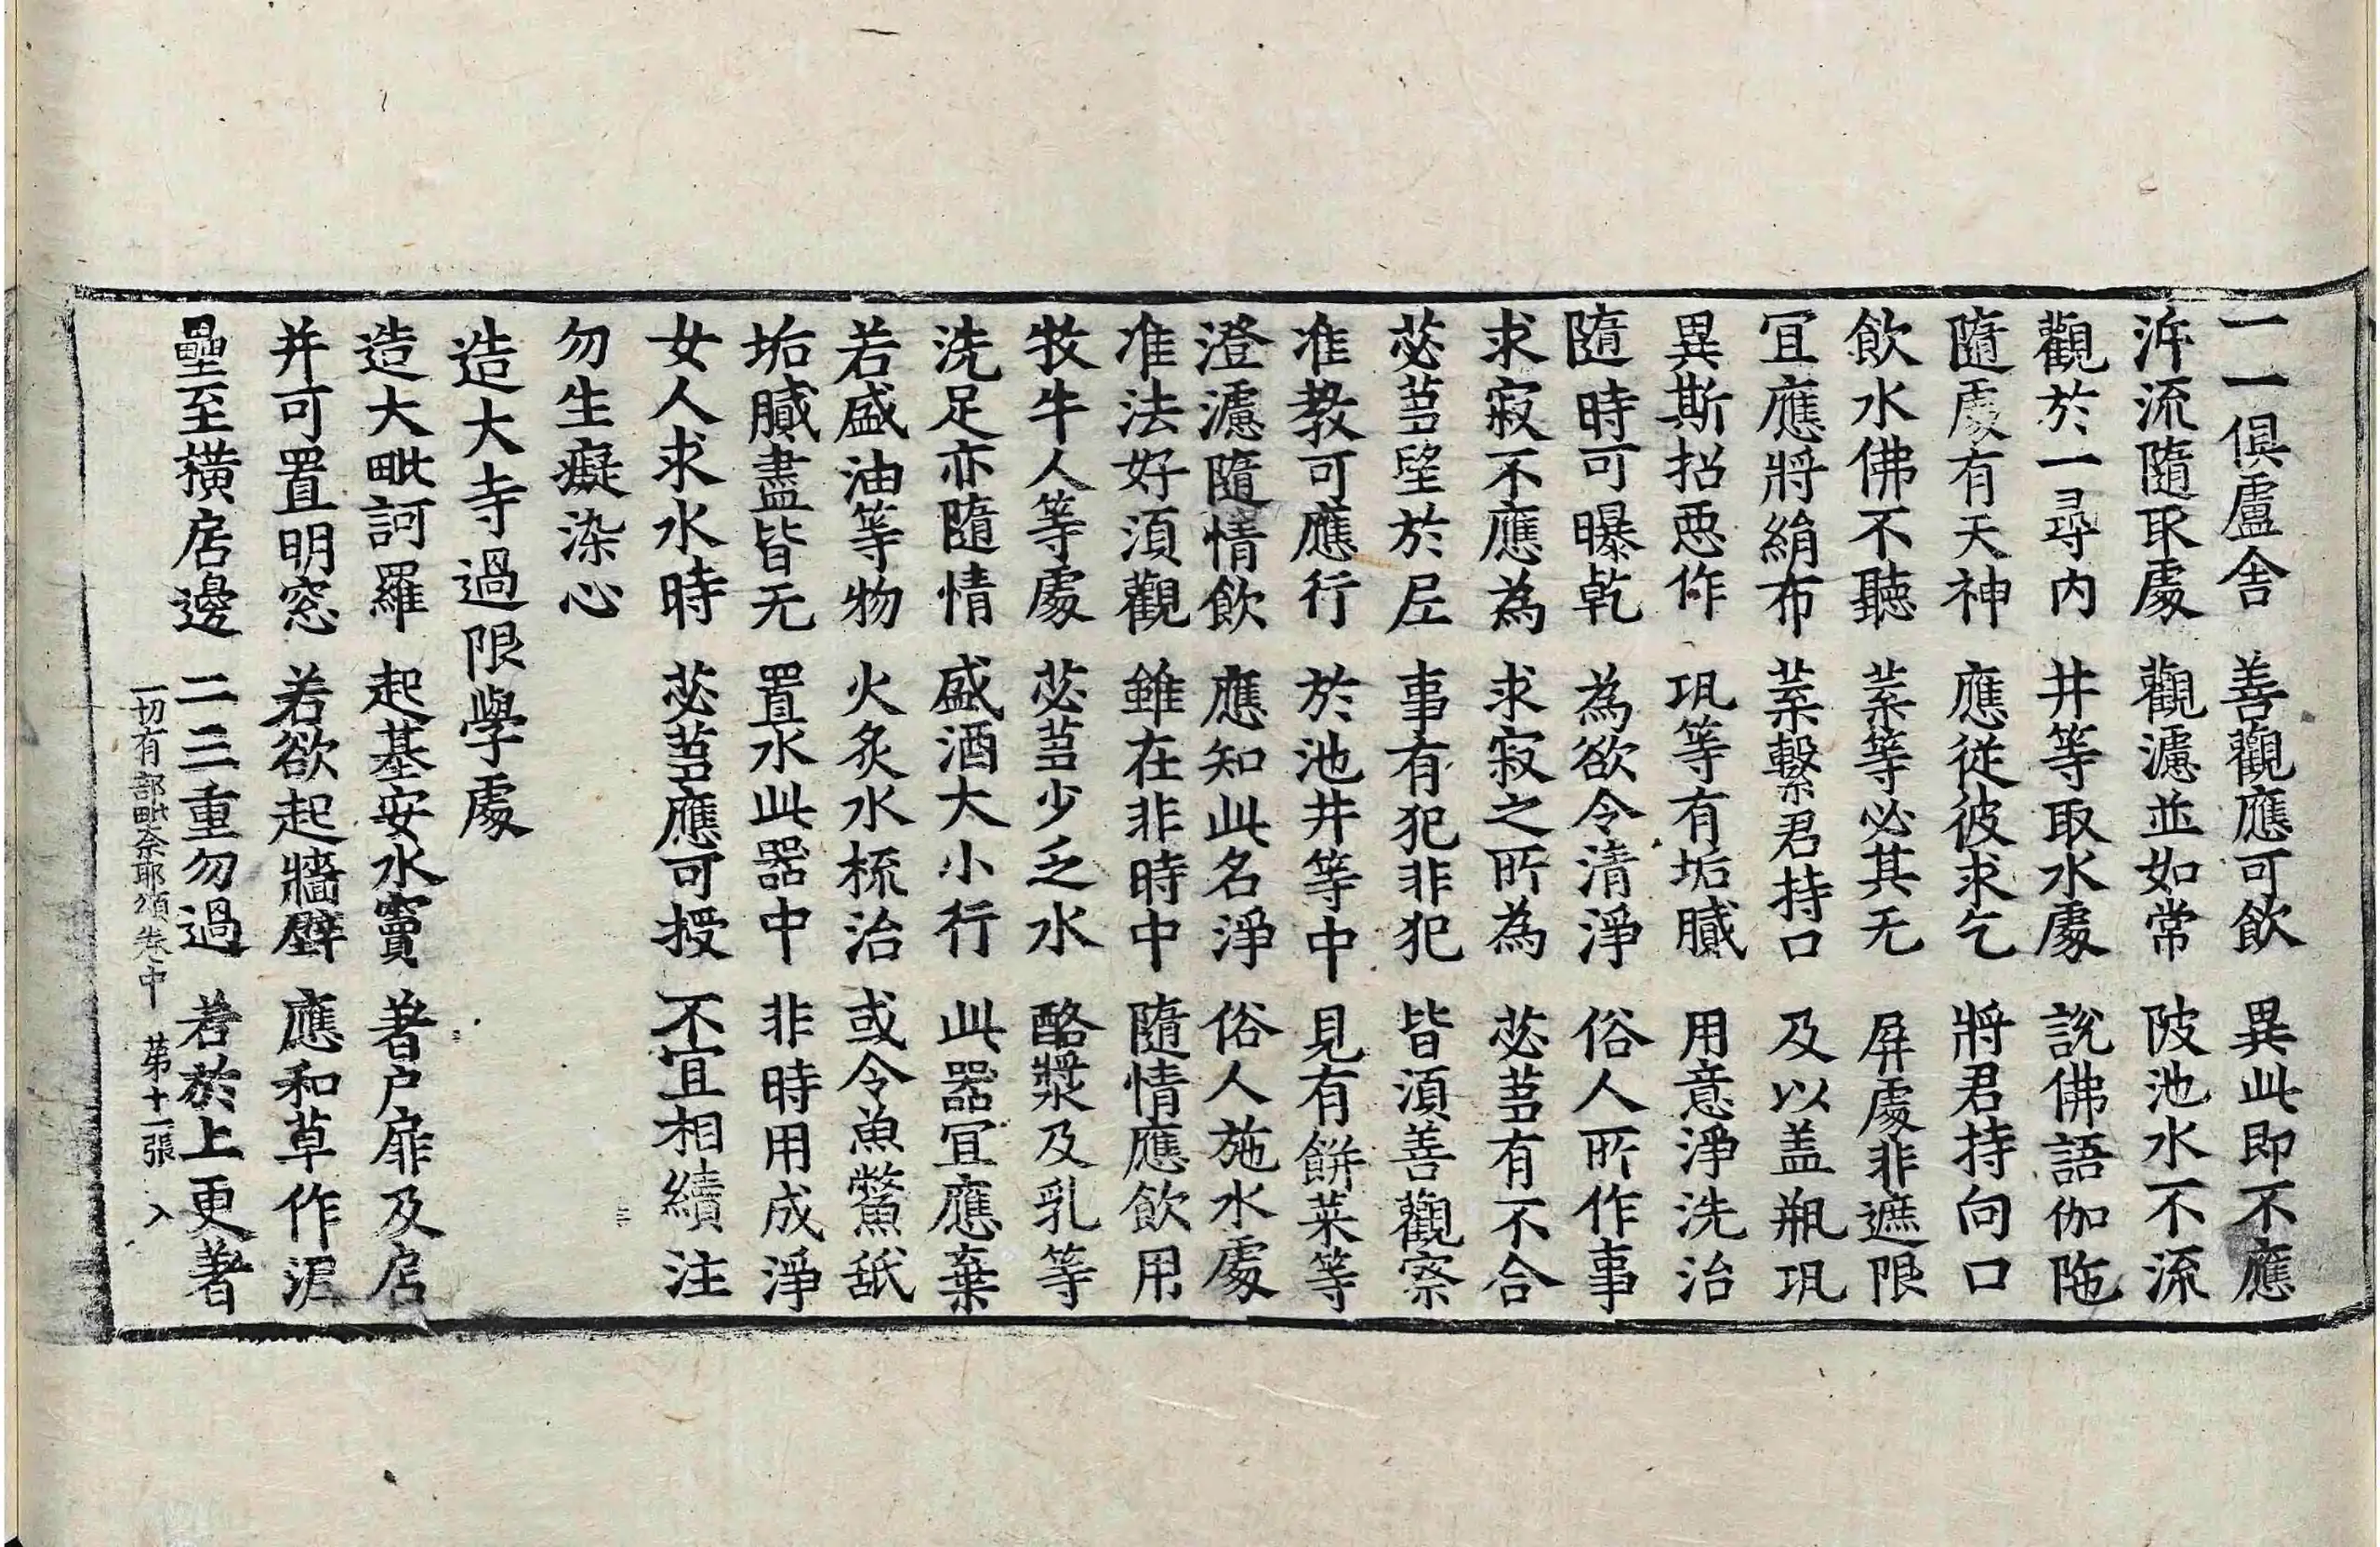 一一俱盧舍　善觀應可飲　異此即不應
泝流隨取處　觀濾並如常　陂池水不流
觀於一尋內　井等取水處　說佛語伽陁
隨處有天神　應從彼求乞　將君持向口
飲水佛不聽　葉等必其无　屏處非遮限
冝應將絹布　葉繫君持口　及以盖瓶瓨
異斯招惡作　瓨等有垢膩　用意淨洗治
隨時可曝乾　為欲令清淨　俗人所作事
求寂不應為　求寂之所為　苾蒭有不合
苾蒭望於尼　事有犯非犯　皆須善觀察
准教可應行　於池井等中　見有餅菜等
澄濾隨情飲　應知此名淨　俗人施水處
准法好須觀　雖在非時中　隨情應飲用
牧牛人等處　苾蒭少乏水　酪漿及乳等
洗足亦隨情　盛酒大小行　此器冝應棄
若盛油等物　火炙水梳治　或令魚鱉舐
垢膩盡皆无　置水此器中　非時用成淨
女人求水時　苾蒭應可授　不冝相續注
勿生癡染心
造大寺過限學處
造大毗訶羅　起基安水竇　著户扉及居
并可置明窓　若欲起牆壁　應和草作泥
壘至横居邊　二三重勿過　若於上更著
一切有部毗奈耶頌卷中　第十一張　入